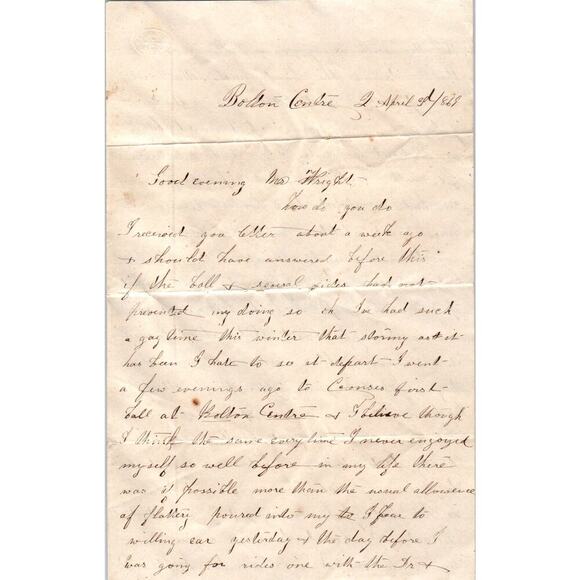 Bolton Centre 2 April 2d/1869
Good evening Mr Wright
how do you do
I received you letter about a week ago
& should have answered before this
if the ball & several rides had not
prevented my doing so oh I've had such
a gay time this winter that stormy as it
has been I hate to se it depart I went
a few evenings ago to first
ball at Bolton Centre & I believe though
I think the same every time I never engoyed
myself so well before in my life there
was if possible more than the usual allowence
of flattery poured into my to
willing ear yesterday & the day before I
was going for rides one with the Dr &